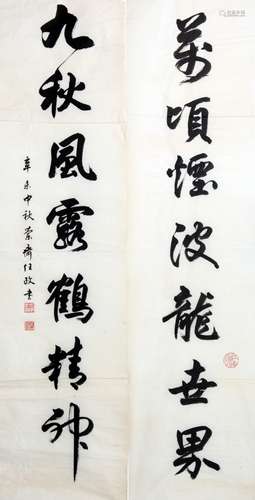 萬頃煙波龍世界
九秋風露鶴精神
辛未中秋蘭齋任政書